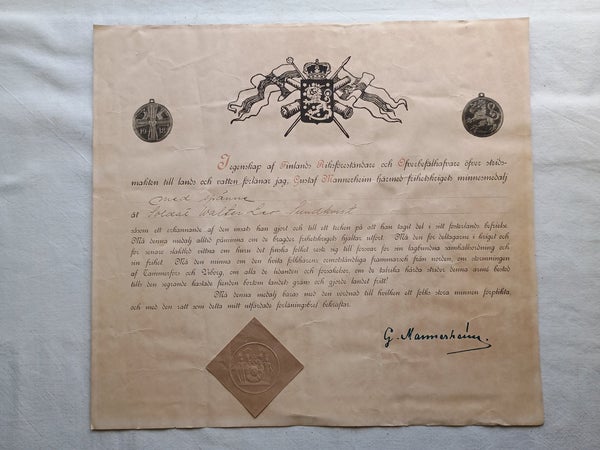 I egenskap af Finlands Riksföreståndare och Öfverbefälhafvare öfver strids-
makten till lands och vatten förlänar jag, Gustaf Mannerheim härmed frihetskrigets minnesmedalj
med spänne
åt Soldat Walter Leo Sundkvist
såsom ett erkännande af den insats han gjort och till ett tecken på att han tagit del i sitt fosterlands befrielse.
Må denna medalj alltid påminna om de bragder frihetskrigets hjältar utfört. Må den för deltagarne i kriget och
för senare släktled vittna om huru det finska folket reste sig till försvar för sin lagbundna samhällsordning och
sin frihet. Må den minna om den hvita folkhärens oemotståndliga frammarsch från norden, om stormningen
af Tammerfors och Viborg, om alla de lidanden och försakelser, om de talrika hårda strider denna armé bestod
tills den segrande kastade fienden bortom landets gräns och gjorde landet fritt!
Må denna medalj bäras med den vördnad till hvilken ett folks stora minnen förplikta
och med den rätt som detta mitt utfärdade förläningsbref bekräftar.
G. Mannerheim.